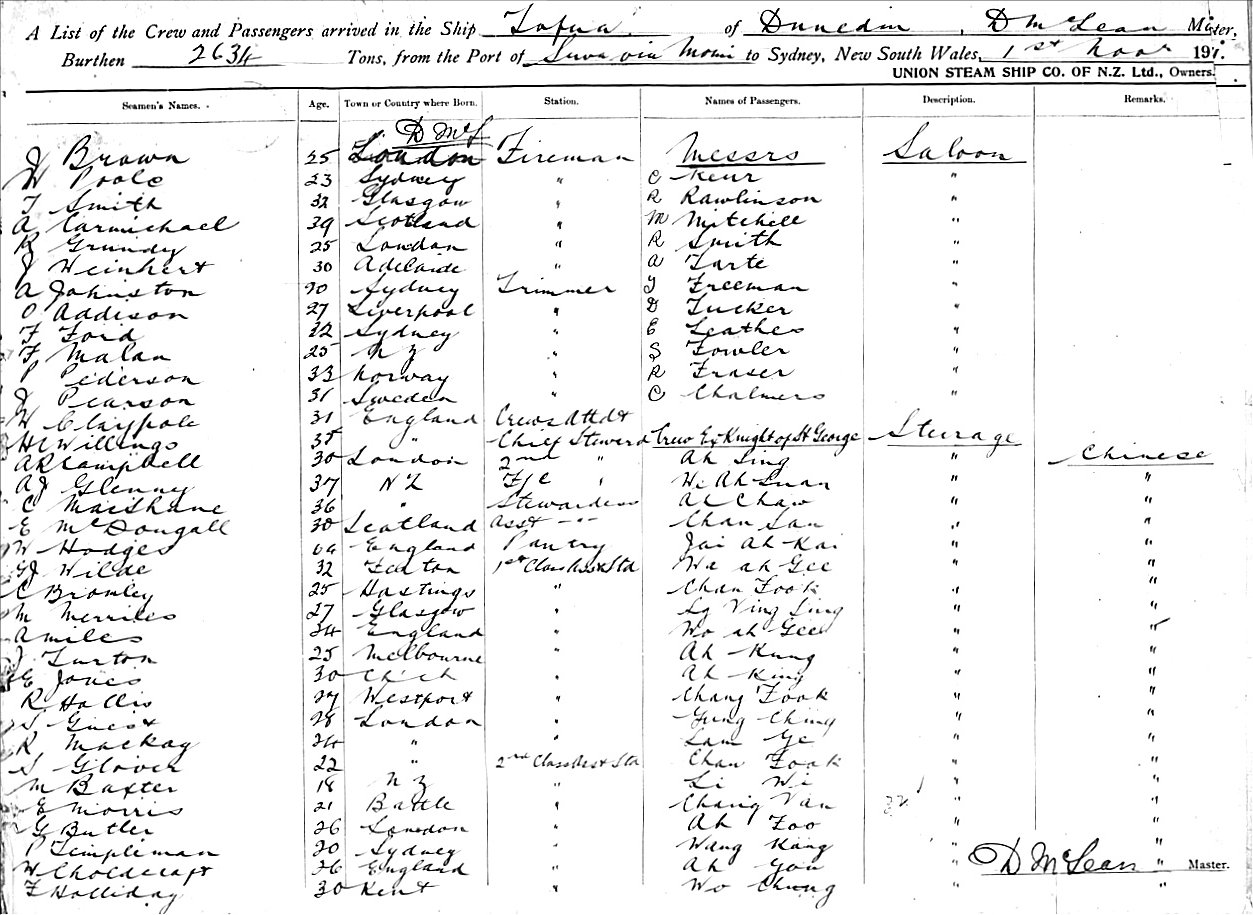 A List of the Crew and Passengers arrived in the Ship Tofua of Dunedin, D McLean Master,
Burthen 2634 Tons, from the Port of Suva via Momi to Sydney, New South Wales, 1st Novr 191
UNION STEAM SHIP CO. OF N.Z. Ltd., Owners.
Seamen's Names. Age. Town or Country where Born. Station. Names of Passengers. Description. Remarks.
D McL
J Brown 25 London Fireman Messrs Saloon
W Poole 23 Sydney " C Keur "
T Smith 32 Glasgow " R Rawlinson "
A Carmichael 39 Scotland " M Mitchell "
R Grundy 25 London " R Smith "
J Weinhert 30 Adelaide " A Tarte "
A Johnston 20 Sydney Trimmer J Freeman "
O Addison 27 Liverpool " D Tucker "
F Ford 22 Sydney " E Leathes "
F Malan 25 N Z " S Fowler "
P Pederson 33 Norway " R Fraser "
J Pearson 31 Sweden " C Chalmers "
W Claypole 31 England Crews Attdt
H Willings 35 " Chief Steward Crew Ex Knight of St George Steerage
A R Campbell 30 London 2nd " Ah Sing Chinese
A J Glenny 37 N Z F/C " Ah "
C MacShane 36 " Stewardess Ah Chaw " "
E McDougall 30 Scotland Asst -"- Chan San " "
W Hodges 64 England Pantry Jai Ah Kai " "
G J Wilde 32 1st Class Asst Std Wa Ah Gee " "
C Bromley 25 Hastings " Chan Fook " "
M Merriles 27 Glasgow " Ying " "
A Miles 34 England " Wo Ah Gee " "
J Turton 25 Melbourne " Ah Kung " "
E Jones 30 Ch'ch " Ah King " "
R Hollis 27 Westport " Chang Fook " "
S Guest 28 London " Yung Ching " "
R Mackay 24 " " Lam Ye " "
S Glover 22 " 2nd Class Asst Std Chan Fook " "
M Baxter 18 N Z " Li Wi " "
E Morris 21 Battle " Chang Van " "
G Butler 26 London " Ah Foo " "
P Templeman 20 Sydney " Wang Kang " "
W Choldcraft 26 England " Ah You " D McLean " Master.
F Holliday 30 Kent " Wo Chung " "